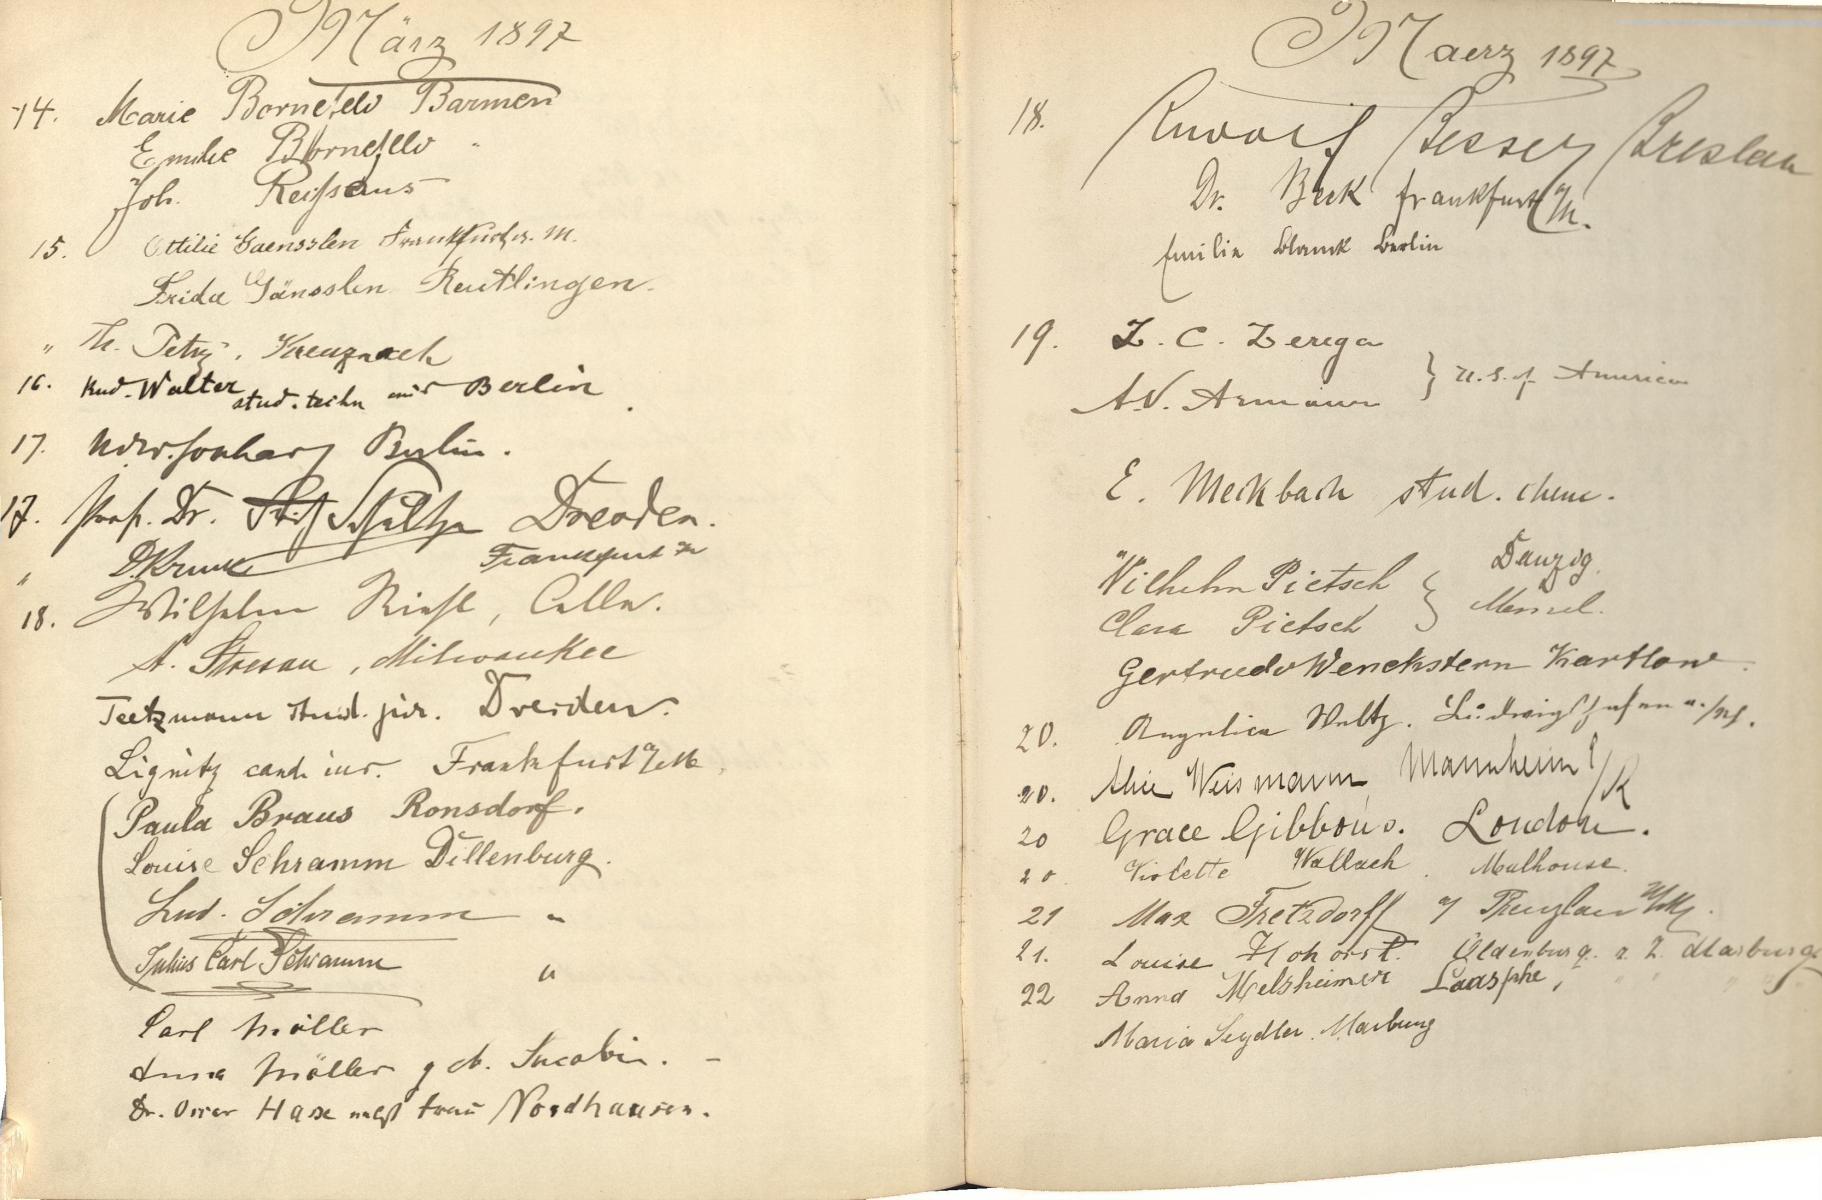 März 1897
14. Marie Bornefeld Barmen
Emilie Bornefeld "
Joh.
15. Ottilie Gaensslen Frankfurt a. M.
Frida Gänsslen Reutlingen.
" Th. Petry, Kreuznach
16. Rud. Walter stud. techn aus Berlin.
17. Berlin.
17. Prof. Dr. Fritz Schultze Dresden.
" Frankfurt a/M
18. Wilhelm Riehl, Celle.
A. Stresau, Milwaukee
Teetzmann stud. jur. Dresden.
Lignitz cand iur. Frankfurt a/M
Paula Braus Ronsdorf.
Louise Schramm Dillenburg.
Lud. Schramm "
Julius Carl Schramm "
Carl Möller
Anna Möller geb. Jacobi. -
Dr. Oscar Hase nebst Frau Nordhausen.
Maerz 1897
18. Rudolf Besser Breslau
Dr. Beck Frankfurt a/M.
Emilie Blanck Berlin
19. Z. C. Zerega
A. V. Armour } U. S. of America
E. Meckbach stud. chem.
Wilhelm Pietsch { Danzig.
Clara Pietsch Memel.
Gertrud v Wenckstern Kartlow.
20. Angelica Waltz. Ludwigshafen a./Rh.
20. Alice Weismann Mannheim /R
20 Grace Gibbons. London.
20. Violette Wallach. Mulhouse.
21 Max Fretzdorff a/ Prenzlau U/M.
21. Louise Hohorst. Oldenburg. z. Z. Marburg
22 Anna Melsheimer Laasphe, " " " "
Maria Seydler. Marburg